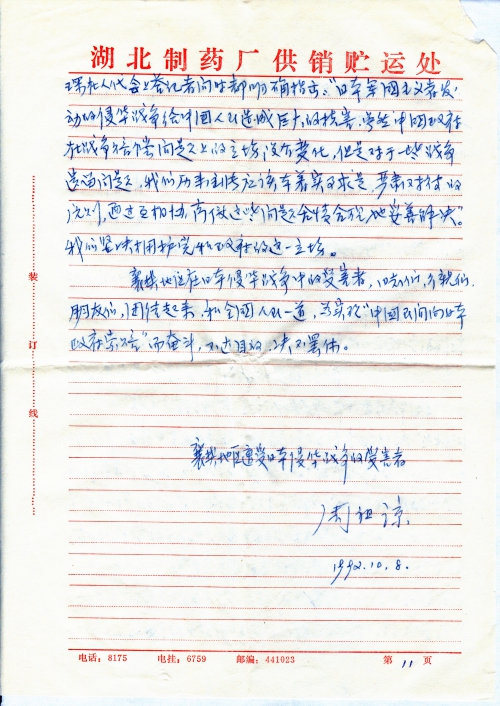 湖北制药厂供销贮运处
届人代会上答记者问时都明确指出："日本军国主义者发
动的侵华战争给中国人民造成巨大的损害，尽管中国政府
在战争赔偿问题上的立场没有变化，但是对于一些战争
遗留问题，我们历来主张应该本着实事求是，严肃对待的
原则，通过互相协商使这些问题合情合理地妥善解决"。
我们坚决拥护党和政府的这一立场。
襄樊地区在日本侵华战争中的受害者，同志们，乡亲们，
朋友们，团结起来，和全国人民一道，为实现"中国民间向日本
政府索赔"而奋斗，不达目的，决不罢休。
襄樊地区遭受日本侵华战争的受害者
周祖谅
1992.10.8.
装订线
电话：8175 电挂：6759 邮编：441023 第 11 页